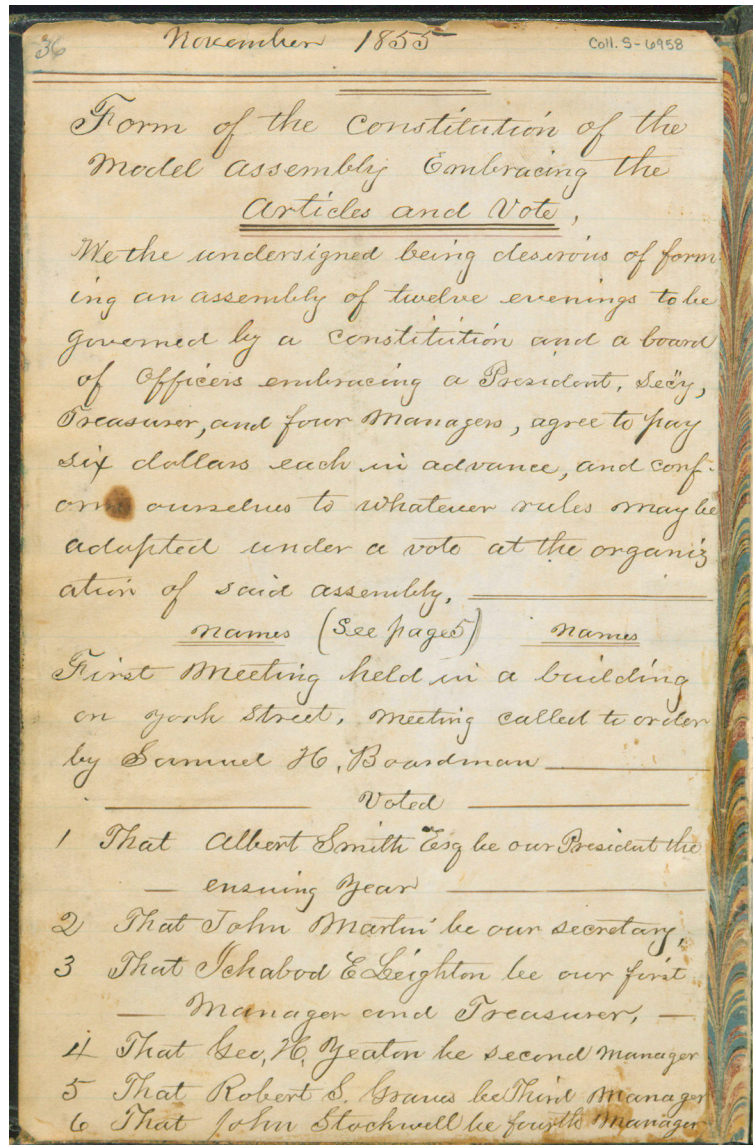 36
November 1855
Coll. S-6958
Form of the Constitution of the
Model Assembly Embracing the
Articles and Vote,
We the undersigned being desirous of form-
ing an assembly of twelve evenings to be
governed by a constitution and a board
of Officers embracing a President, Secy,
Treasurer, and four Managers, agree to pay
six dollars each in advance, and conf-
orm ourselves to whatever rules may be
adopted under a vote at the organiz
ation of said assembly.
Names (See page 5) Names
First Meeting held in a building
on York Street, Meeting called to order
by Samuel H. Boardman
Voted
1 That Albert Smith Esq be our President the
ensuing Year
2 That John Martin be our secretary,
3 That Ichabod E Leighton be our first
Manager and Treasurer,
4 That Geo, H, Yeaton be second Manager
5 That Robert S. Graves be Third Manager
6 That John Stockwell be fourth Manager